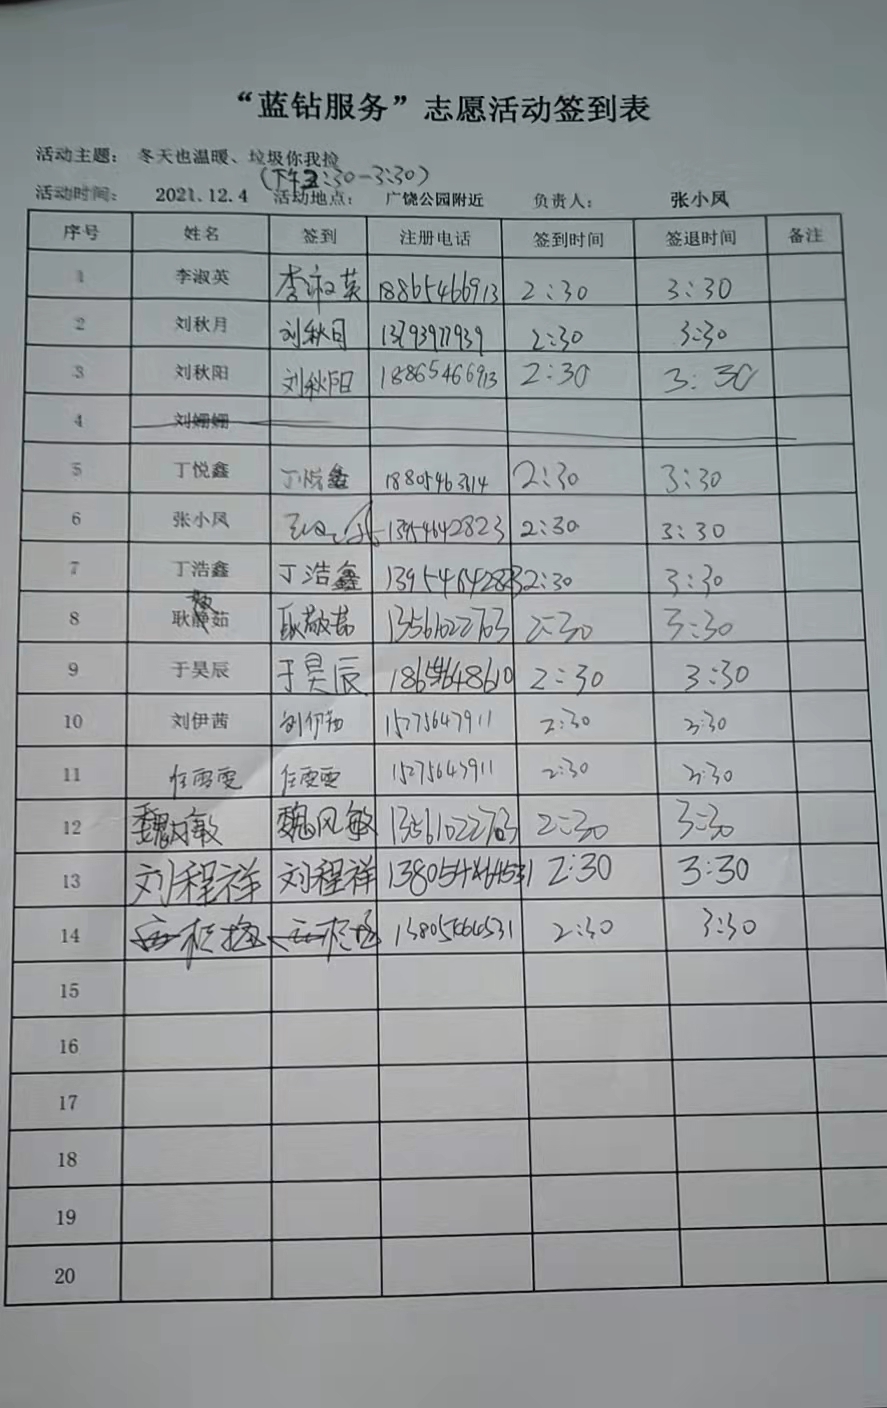 “蓝钻服务”志愿活动签到表
活动主题： 冬天也温暖、垃圾你我捡
(下午2:30-3:30)
活动时间： 2021.12.4 活动地点： 广饶公园附近 负责人： 张小凤
序号 姓名 签到 注册电话 签到时间 签退时间 备注
1 李淑英 李淑英 18865466913 2:30 3:30
2 刘秋月 刘秋月 13793977939 2:30 3:30
3 刘秋阳 刘秋阳 18865466913 2:30 3:30
4 刘姗姗
5 丁悦鑫 丁悦鑫 2:30 3:30
6 张小凤 13954642823 2:30 3:30
7 丁浩鑫 丁浩鑫 13954642823 2:30 3:30
8 耿敬茹 耿敬茹 13561022703 2:30 3:30
9 于昊辰 于昊辰 2:30 3:30
10 刘伊茜 刘伊茜 15275647911 2:30 3:30
11 任雯雯 任雯雯 15275647911 2:30 3:30
12 魏风敏 魏风敏 13561022703 2:30 3:30
13 刘程祥 刘程祥 2:30 3:30
14 2:30 3:30
15
16
17
18
19
20